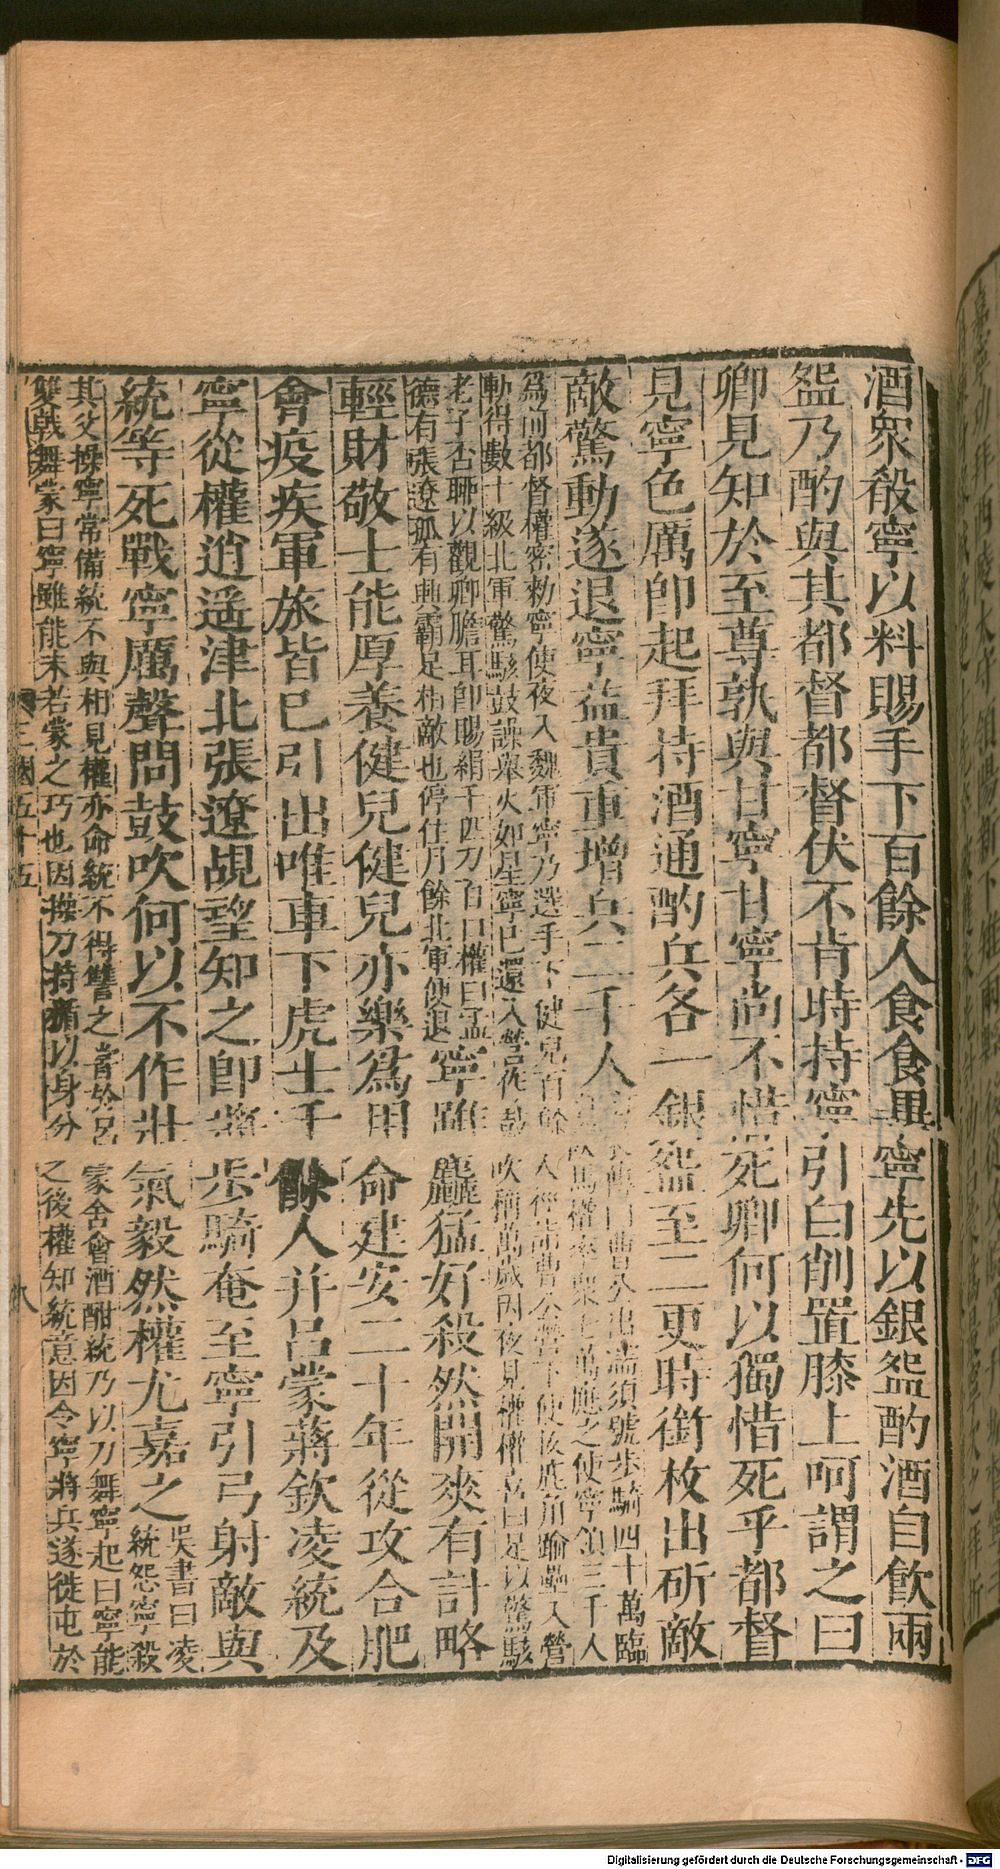 酒衆殽寧以料賜手下百餘人食食畢寧先以銀盌酌酒自飲兩
盌乃酌與其都督都督伏不肯時持寧引白削置膝上呵謂之曰
卿見知於至尊孰與甘寧甘寧尚不惜死卿何以獨惜死乎都督
見寧色厲卽起拜持酒通酌兵各一銀盌至二更時銜枚出斫敵
敵驚動遂退寧益貴重增兵二千人
曹公出濡須號步騎四十萬臨
馬權率衆七萬應之使寧領三千人
爲前都督權密勑寧使夜入魏軍寧乃選手下健兒百餘人徑詣曹公營下使拔鹿角踰壘入營
斬得數十級北軍驚駭鼓譟舉火如星寧已還入營作鼓吹稱萬歲因夜見權權喜曰足以驚駭
老子否聊以觀卿膽耳卽賜絹千匹刀百口權曰孟
德有張遼孤有興霸足相敵也停住月餘北軍便退
寧雖麤猛好殺然開爽有計略
輕財敬士能厚養健兒健兒亦樂爲用命建安二十年從攻合肥
會疫疾軍旅皆已引出唯車下虎士千餘人并呂蒙蔣欽凌統及
寧從權逍遙津北張遼覘望知之卽將步騎奄至寧引弓射敵與
統等死戰寧厲聲問鼓吹何以不作壯氣毅然權尤嘉之
吳書曰凌
統怨寧殺
其父操寧常備統不與相見權亦命統不得讐之嘗於呂蒙舍會酒酣統乃以刀舞寧起曰寧能
雙戟舞蒙曰寧雖能未若蒙之巧也因操刀持楯以身分之後權知統意因令寧將兵遂徙屯於
三國五十五
八
Digitalisierung gefördert durch die Deutsche Forschungsgemeinschaft - DFG